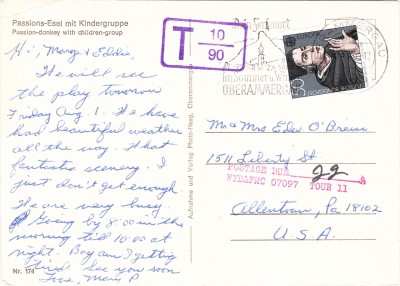 Passions-Esel mit Kindergruppe
Passion-donkey with children-group
Hi, Marge & Eddie,
We will see
the play tomorrow
Friday Aug 1. We have
had beautiful weather
all the way. What
fantastic scenery. I
just don't get enough
We are very busy
Going by 8:00 in the
morning till 10:00 at
night. Boy am I getting
tired. See you soon
Love, Mary P.
Nr. 174
Aufnahme und Verlag Photo-Haag, Oberammergau
T 10/90
Im Sommer u. W
OBERAMMERGAU
Mr & Mrs Edw O'Brien
1511 Liberty St
POSTAGE DUE 22
NYBAFMC 07097 TOUR 11
Allentown, Pa 18102
U.S.A.